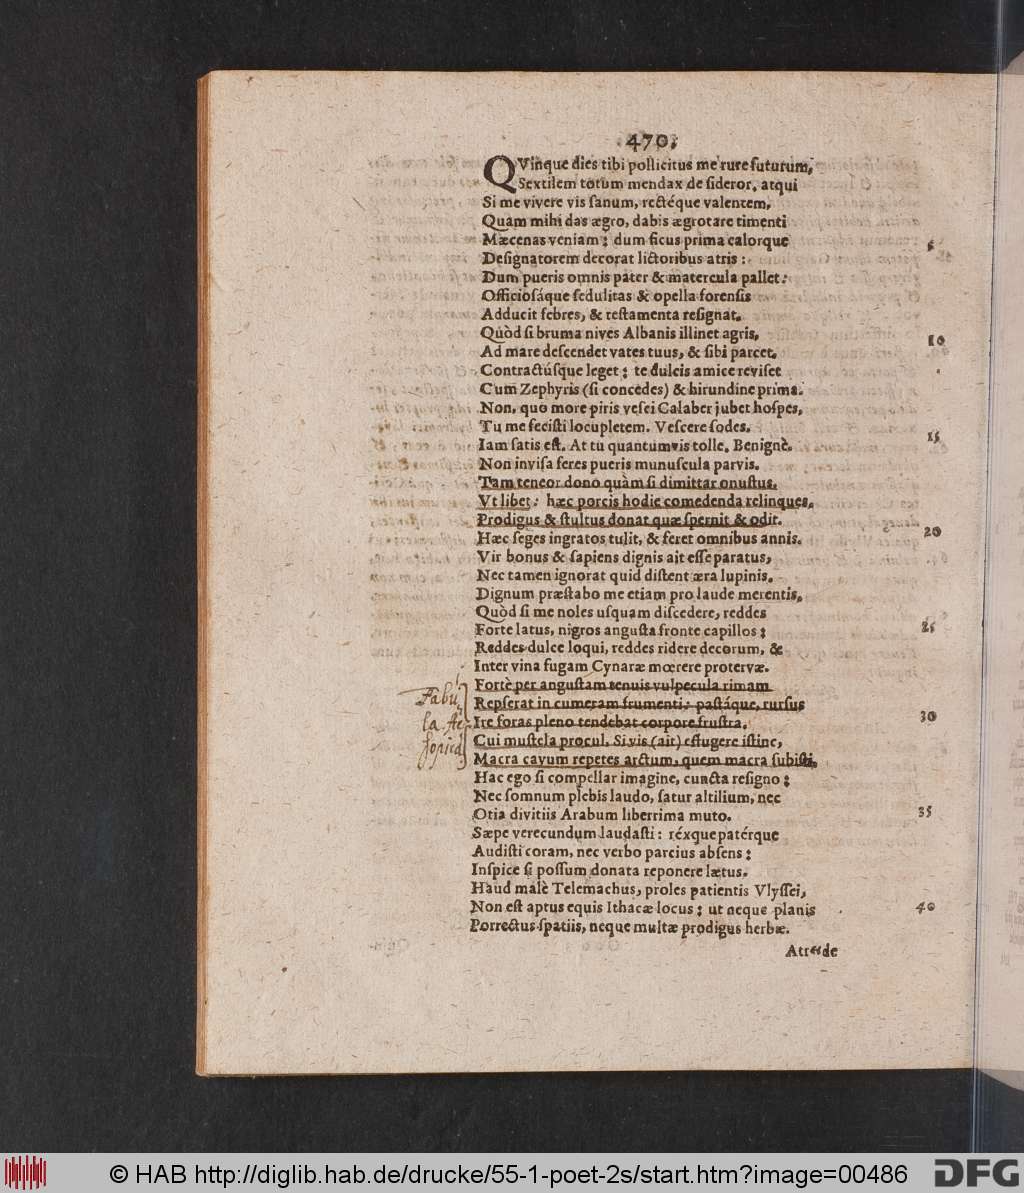 470.
QVinque dies tibi pollicitus me rure futurum,
Sextilem totum mendax desideror, atqui
Si me vivere vis sanum, rectéque valentem,
Quam mihi das ægro, dabis ægrotare timenti
Mæcenas veniam; dum ficus prima calorque
5
Designatorem decorat lictoribus atris:
Dum pueris omnis pater & matercula pallet:
Officiosáque sedulitas & opella forensis
Adducit febres, & testamenta resignat.
Quòd si bruma nives Albanis illinet agris,
10
Ad mare descendet vates tuus, & sibi parcet,
Contractúsque leget; te dulcis amice reviset
Cum Zephyris (si concedes) & hirundine prima.
Non, quo more piris vesci Calaber jubet hospes,
Tu me fecisti locupletem. Vescere sodes.
15
Iam satis est. At tu quantumvis tolle. Benignè.
Non invisa feres pueris munuscula parvis.
Tam teneor dono quàm si dimittar onustus.
Vt libet: hæc porcis hodie comedenda relinques.
Prodigus & stultus donat quæ spernit & odit.
20
Hæc seges ingratos tulit, & feret omnibus annis.
Vir bonus & sapiens dignis ait esse paratus,
Nec tamen ignorat quid distent æra lupinis.
Dignum præstabo me etiam pro laude merentis.
Quòd si me noles usquam discedere, reddes
25
Forte latus, nigros angusta fronte capillos;
Reddes dulce loqui, reddes ridere decorum, &
Inter vina fugam Cynaræ mœrere protervæ.
Fortè per angustam tenuis vulpecula rimam
Fabu
Repserat in cumeram frumenti: pastáque, rursus
30
la Ae-
Ire foras pleno tendebat corpore frustra.
sopica
Cui mustela procul. Si vis (ait) effugere istinc,
Macra cavum repetes arctum, quem macra subisti.
Hac ego si compellar imagine, cuncta resigno;
Nec somnum plebis laudo, satur altilium, nec
35
Otia divitiis Arabum liberrima muto.
Sæpe verecundum laudasti: réxque patérque
Audisti coram, nec verbo parcius absens;
Inspice si possum donata reponere lætus.
Haud malè Telemachus, proles patientis Vlyssei,
Non est aptus equis Ithacæ locus; ut neque planis
40
Porrectus spatiis, neque multæ prodigus herbæ.
Atride
© HAB http://diglib.hab.de/drucke/55-1-poet-2s/start.htm?image=00486
DFG